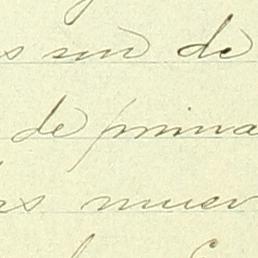 s son de
de prima
rs nuev